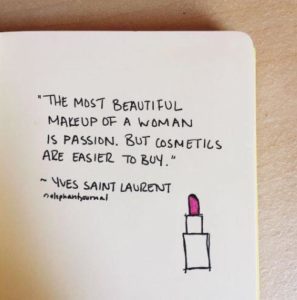 "THE MOST BEAUTIFUL
MAKEUP OF A WOMAN
IS PASSION. BUT COSMETICS
ARE EASIER TO BUY."
~ YVES SAINT LAURENT
elephantjournal